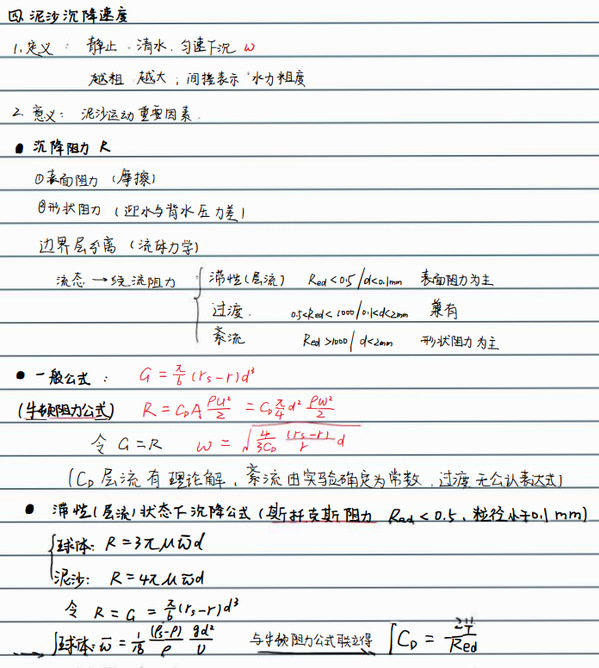 四. 泥沙沉降速度
1. 定义: 静止 清水. 匀速下沉 ω
越粗 越大; 间接表示 "水力粗度
2. 意义: 泥沙运动重要因素.
● 沉降阻力 R
①表面阻力 (摩擦)
②形状阻力 (迎水与背水压力差)
边界层分离 (流体力学)
流态 → 绕流阻力 { 滞性(层流) Red<0.5/d<0.1mm 表面阻力为主
过渡. 0.5<Red<1000/0.1<d<2mm 兼有
紊流 Red>1000/d<2mm 形状阻力为主
● 一般公式: G = π/6 (rs-r)d³
(牛顿阻力公式) R = C_D A ρU²/2 = C_D π/4 d² ρω²/2
令 G=R ω = √(4/3C_D (rs-r)/r d)
(C_D 层流有理论解, 紊流由实验确定为常数, 过渡无公认表达式)
● 滞性(层流)状态下沉降公式 (斯托克斯阻力 Red<0.5, 粒径小于0.1mm)
{ 球体: R = 3πμω̄d
泥沙: R = 4πμω̄d
令 R = G = π/6 (rs-r)d³
{ 球体: ω̄ = 1/18 (ρs-ρ)/ρ gd²/υ 与牛顿阻力公式联立得 { C_D = /Red